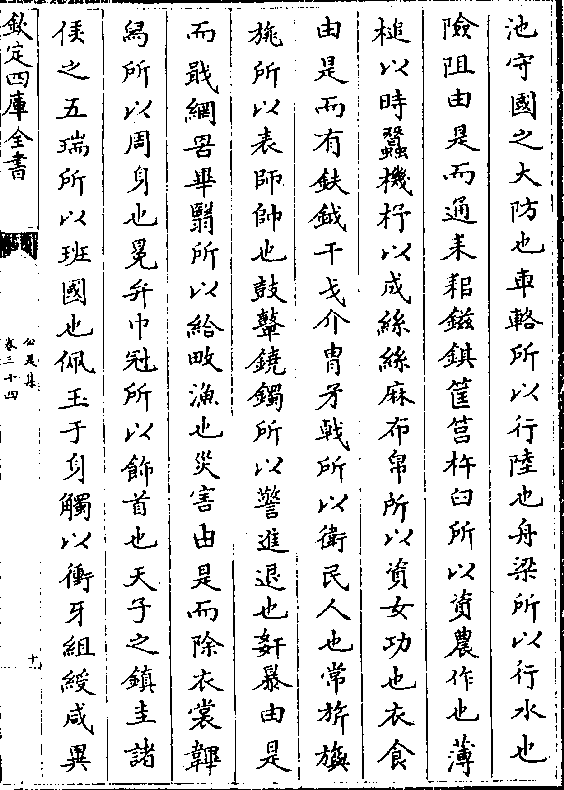 池守國之大防也車輅所以行陸也舟梁所以行水也
險阻由是而通耒耜鎡錤筐筥杵臼所以資農作也薄
槌以時蠶機杼以成絲絲麻布帛所以資女功也衣食
由是而有鈇鉞干戈介冑矛戟所以衛民人也常旂旟
旐所以表師帥也鼓鼙鐃鐲所以警進退也姦暴由是
而戢網罟畢翳所以給畋漁也災害由是而除衣裳韠
舄所以周身也冕弁巾冠所以飾首也天子之鎮圭諸
侯之五瑞所以班國也佩玉于身觸以衝牙組綬咸異
欽定四庫全書
公是集
卷三十四
十